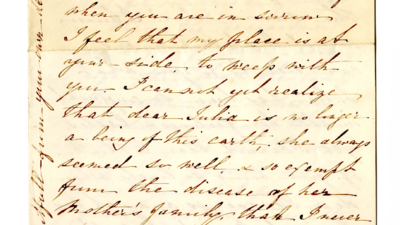 when you are in sorrow
I feel that my place is at
your side, to weep with
you I cannot yet realize
that dear Julia is no longer
a being of this earth, she always
seemed so well & so exempt
from the disease of her
Mother's family, that I never